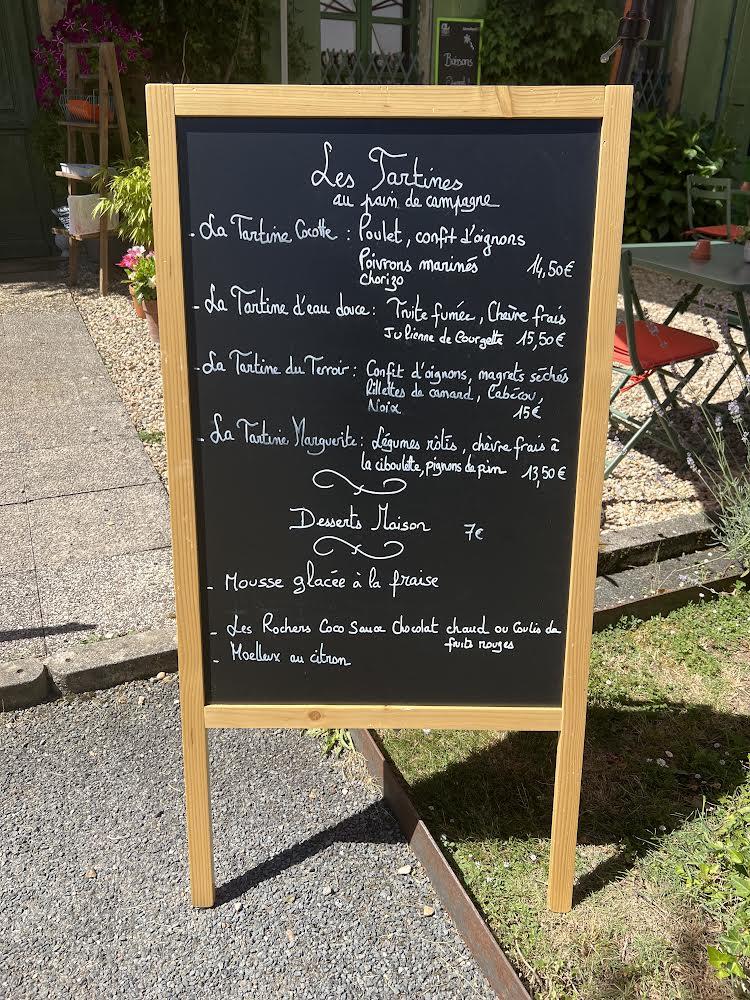 Boissons
Les Tartines
au pain de campagne
- La Tartine Cocotte : Poulet, confit d'oignons
Poivrons marinés 14,50€
Chorizo
- La Tartine d'eau douce : Truite fumée, Chèvre frais
Julienne de Courgette 15,50€
- La Tartine du Terroir : Confit d'oignons, magrets séchés
Rillettes de canard, Cabécou,
Noix 15€
- La Tartine Marguerite : Légumes rôtis, chèvre frais à
la ciboulette, pignons de pin 13,50€
Desserts Maison 7€
- Mousse glacée à la fraise
- Les Rochers Coco Sauce Chocolat chaud ou Coulis de
fruits rouges
- Moelleux au citron